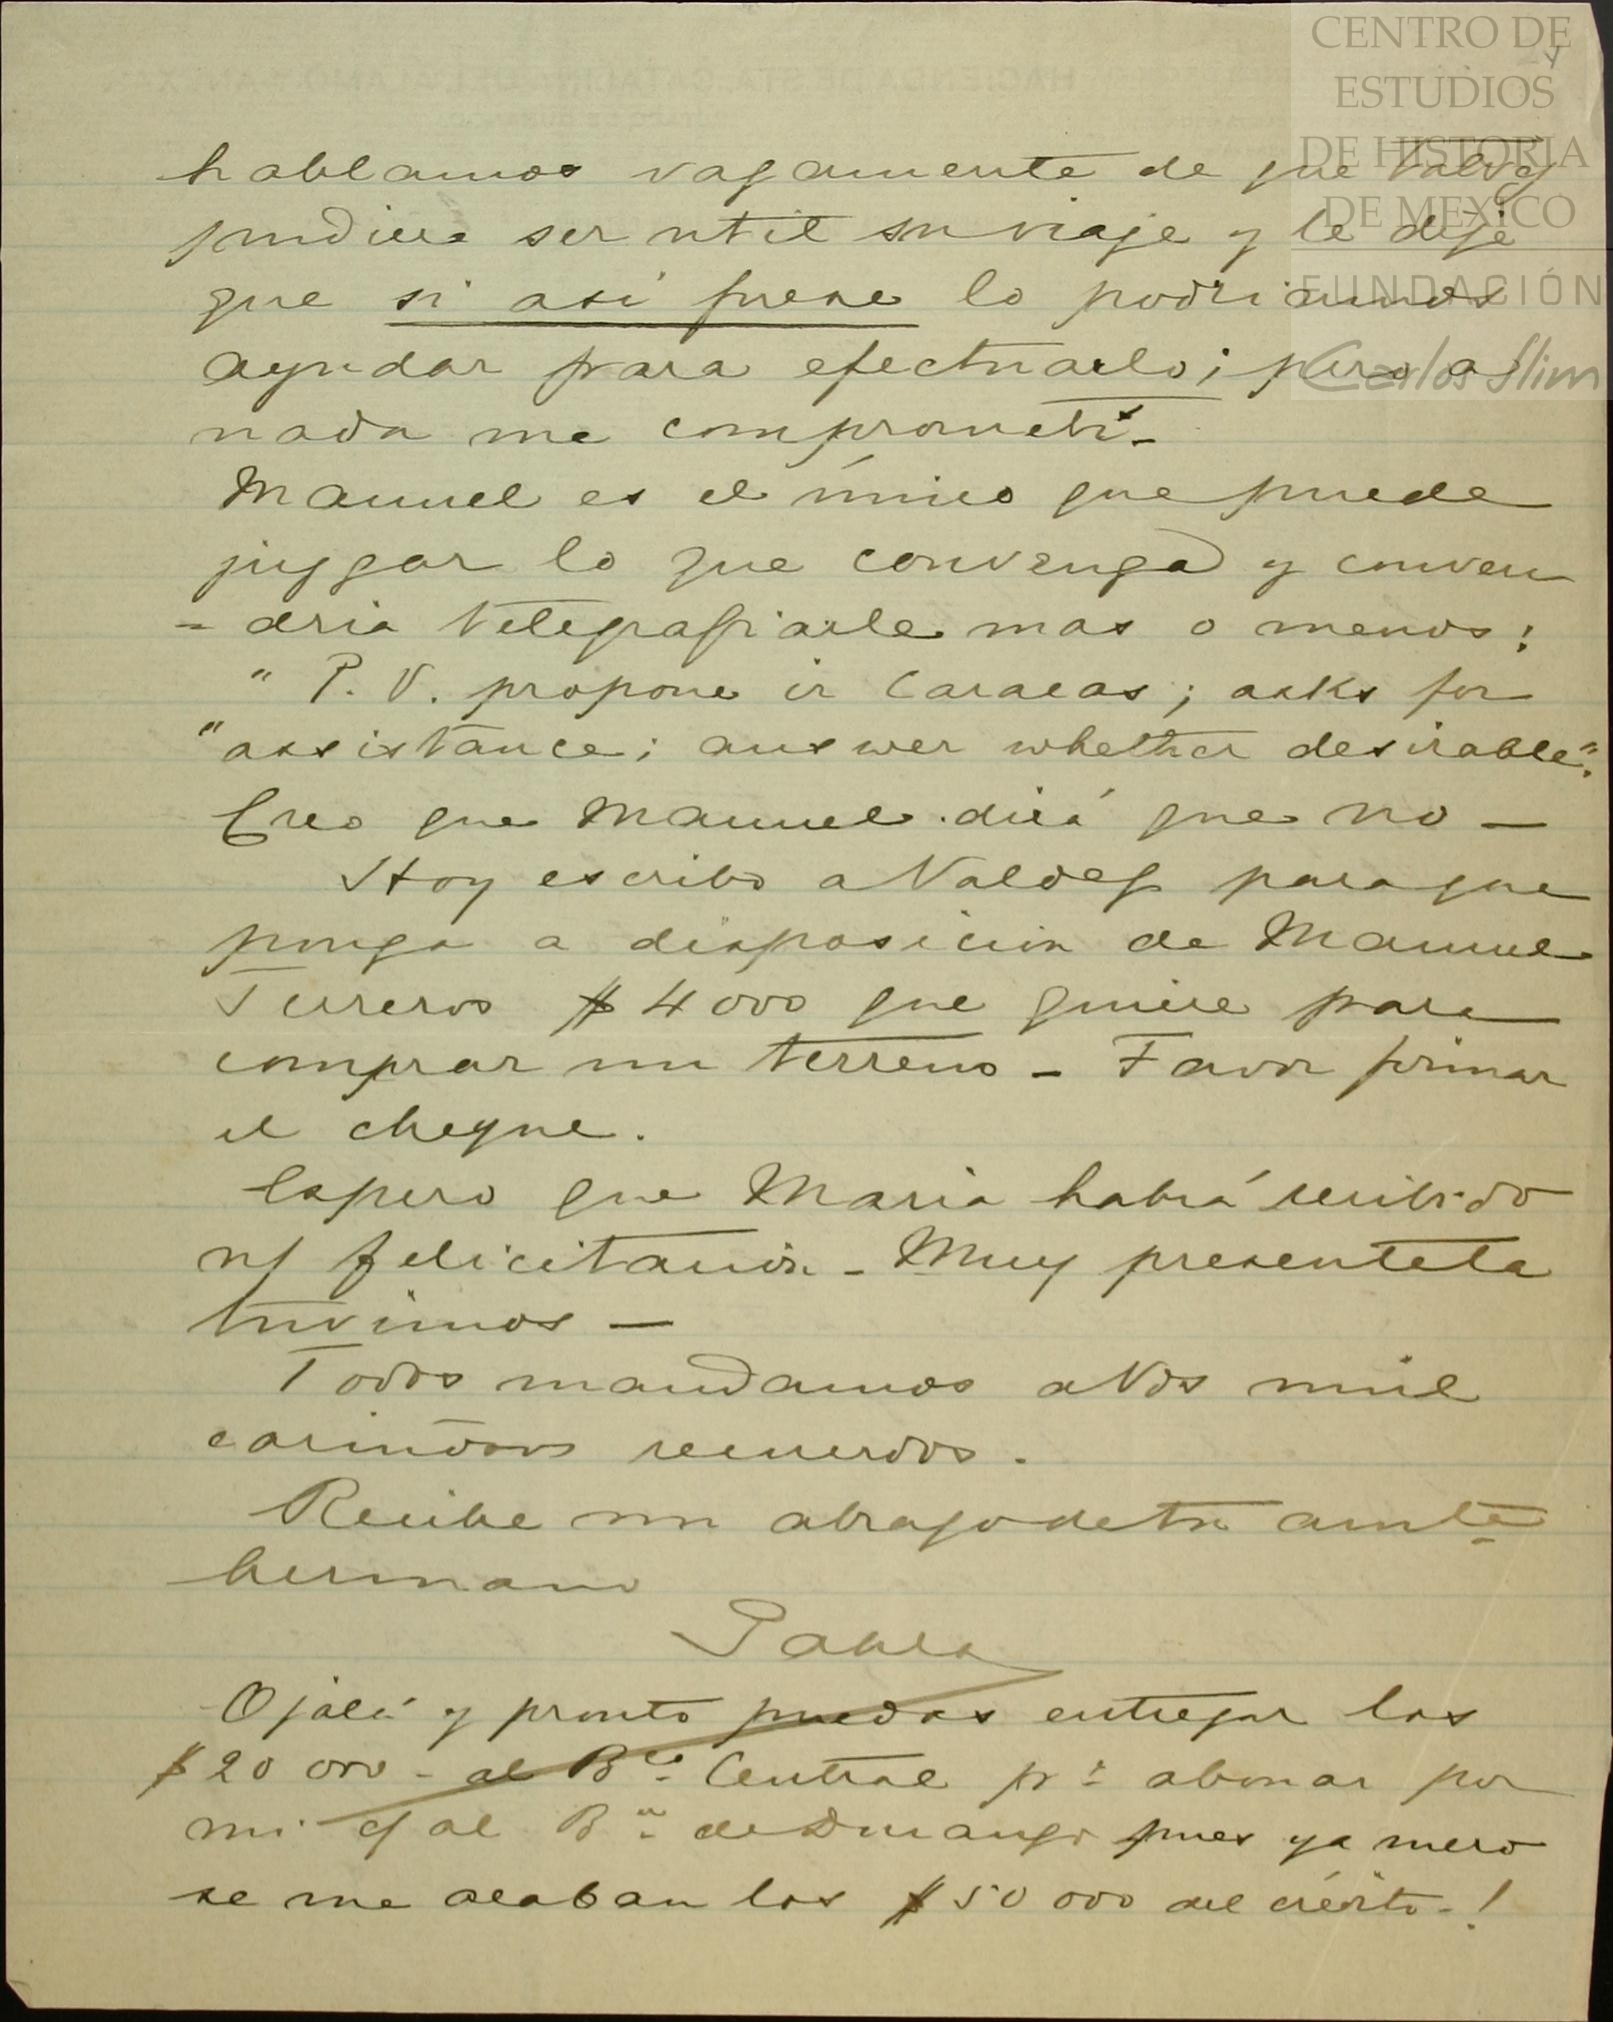 CENTRO DE
ESTUDIOS
DE HISTORIA
DE MEXICO
FUNDACIÓN
Carlos Slim
hablamos vagamente de que talvez
pudiera ser util su viaje y le dije
que si asi fuese lo podriamos
ayudar para efectuarlo; pero a
nada me comprometí–
Manuel es el único que puede
juzgar lo que convenga y conven
= dria telegrafiarle mas o menos:
" P. V. propone ir Caracas; asks for
"assistance; answer whether desirable".
Creo que Manuel dirá que no –
Hoy escribo a Valdez para que
ponga a disposicion de Manuel
Terreros $4000 que quiere para
comprar un terreno – Favor firmar
el cheque.
Espero que Maria habrá recibido
n/ felicitacion – Muy presente la
tuvimos –
Todos mandamos a Vds mil
cariñosos recuerdos.
Recibe un abrazo de tu amte
hermano
Pablo
Ojalá y pronto puedas entregar los
$20 000 – al Bco. Central pa. abonar por
mi c/ al Bco. de Durango pues ya mero
se me acaban los $50 000 del crédito – !